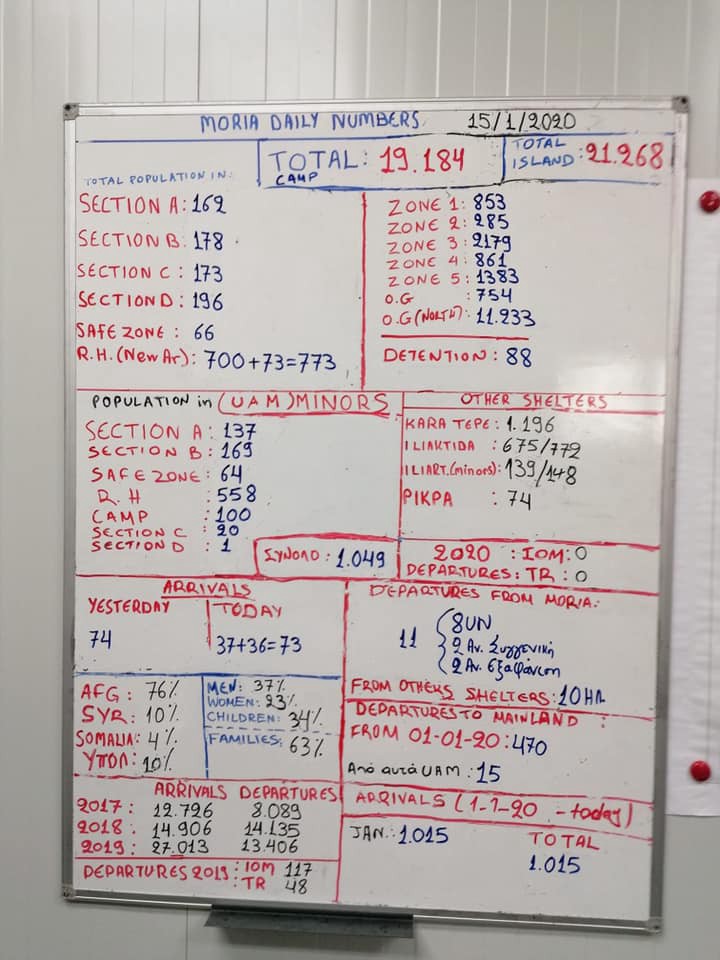 MORIA DAILY NUMBERS 15/1/2020
TOTAL CAMP: 19.184
TOTAL ISLAND: 21.268
TOTAL POPULATION IN:
SECTION A: 162
SECTION B: 178
SECTION C: 173
SECTION D: 196
SAFE ZONE: 66
R.H. (New Ar): 700+73=773
ZONE 1: 853
ZONE 2: 285
ZONE 3: 2179
ZONE 4: 861
ZONE 5: 1383
O.G: 754
O.G (NORTH): 11.233
DETENTION: 88
POPULATION in (UAM) MINORS
SECTION A: 137
SECTION B: 169
SAFE ZONE: 64
R.H: 558
CAMP: 100
SECTION C: 20
SECTION D: 1
ΣΥΝΟΛΟ: 1.049
OTHER SHELTERS
KARA TEPE: 1.196
ILIAKTIDA: 675/772
ILIAKT.(minors): 139/148
PIKPA: 74
2020 : IOM: 0
DEPARTURES: TR: 0
ARRIVALS
YESTERDAY
74
TODAY
37+36=73
DEPARTURES FROM MORIA:
11
8UN
2 Αν. Συγγενική
2 Αν. εξαφάνιση
FROM OTHERS SHELTERS: 10
DEPARTURES TO MAINLAND:
FROM 01-01-20: 470
Από αυτά UAM: 15
AFG: 76%
SYR: 10%
SOMALIA: 4%
ΥΠΟΛ: 10%
MEN: 37%
WOMEN: 23%
CHILDREN: 34%
FAMILIES: 63%
ARRIVALS DEPARTURES
2017: 12.726 8.089
2018: 14.906 14.135
2019: 27.013 13.406
DEPARTURES 2019: IOM 117
TR 48
ARRIVALS (1-1-20 - today)
JAN.: 1.015
TOTAL
1.015